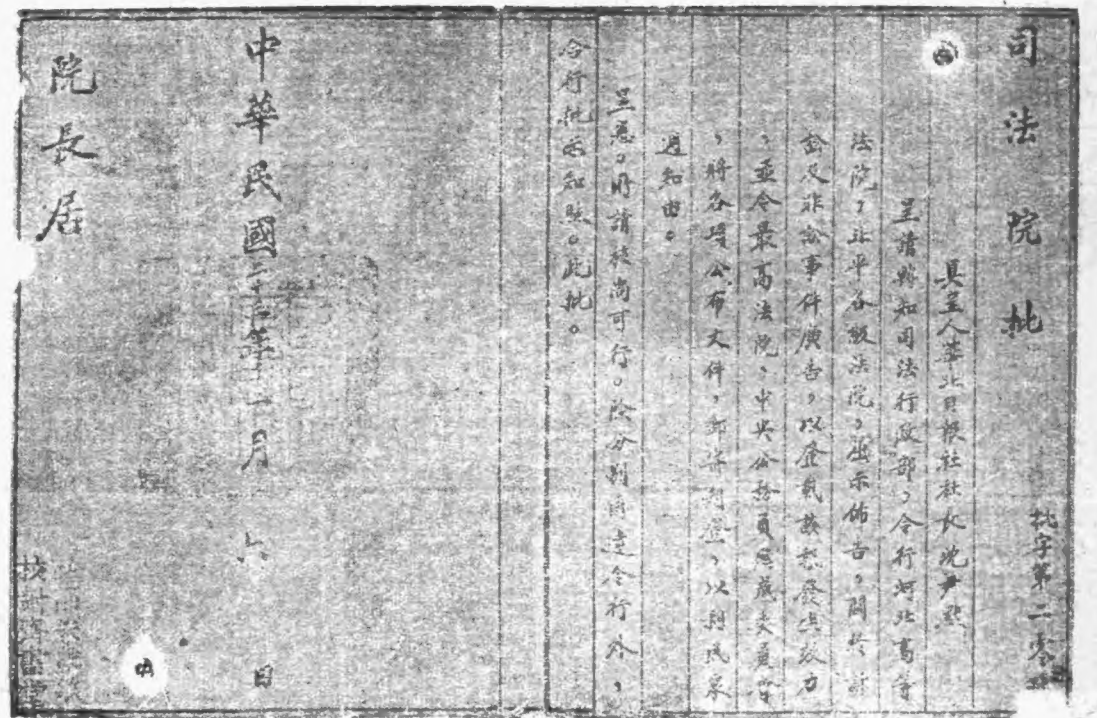 司法院批
批字第二零
具呈人華北日報社社長沈尹默
呈請轉知司法行政部,令行河北高等
法院,北平各級法院,嗣示佈告,關於訴
訟及非訟事件廣告,以登載該報發生效力
,並令最高法院、中央公務員懲戒委員會
,將各項公布文件,郵寄刊登,以利民眾
週知由。
呈悉。所請核尚可行。除分別函達令行外,
合行批示知照。此批。
中華民國二十年十一月六日
院長居